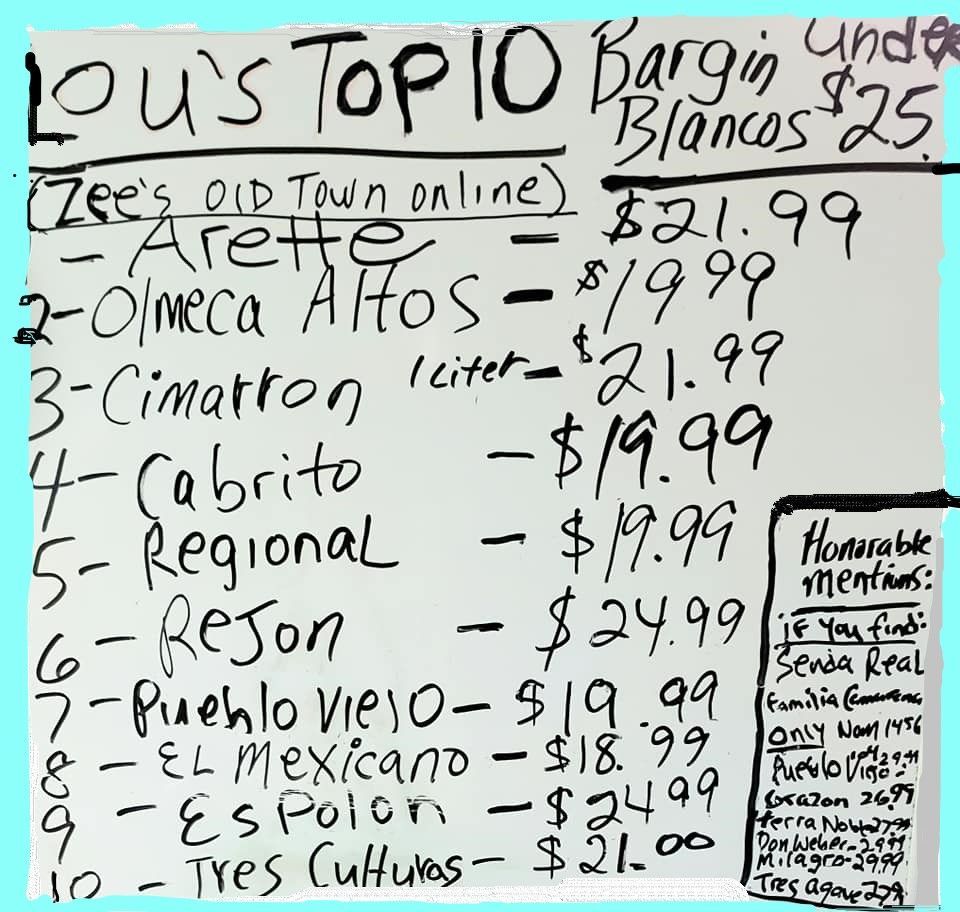 Lou's Top 10 Bargin Under
Blancos $25.
(Zee's Old Town online)
- Arette - $21.99
2- Olmeca Altos - $19.99
3- Cimarron 1 Liter - $21.99
4- Cabrito - $19.99
5- Regional - $19.99
6- Rejon - $24.99
7- Pueblo Viejo - $19.99
8- EL Mexicano - $18.99
9- Espolon - $24.99
10- Tres Culturas - $21.00
Honorable
mentions:
IF You find:
Senda Real
Familia
Only Nom 1456
Pueblo Viejo
Corazon 26.99
Terra Noble 27.99
Don Weber - 29.99
Milagro - 29.99
Tres Agave 27.99